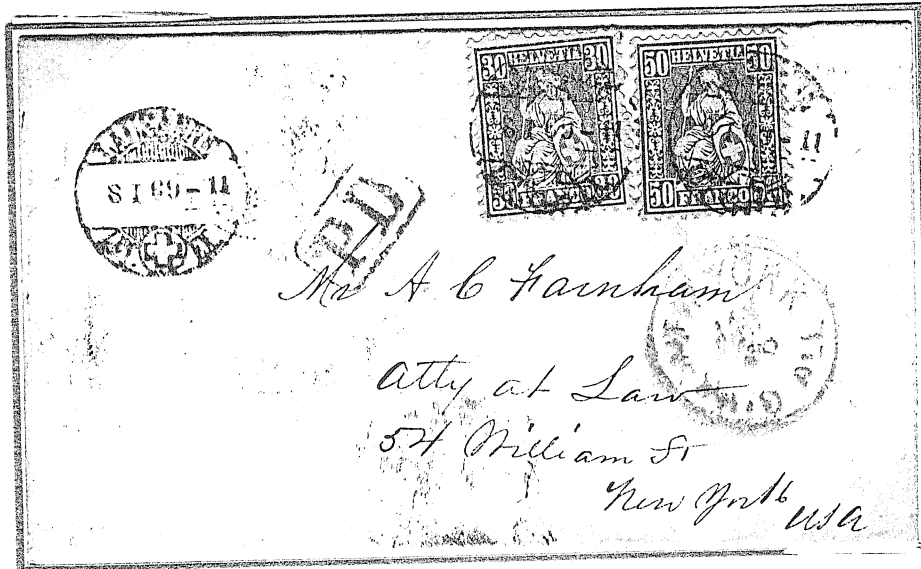 30 HELVETIA 30
50 FRANCO
50 HELVETIA 50
50 FRANCO
8 I 69 - 11
11
PD
Mr A C Farnham
Atty at Law
54 William St
New York
USA